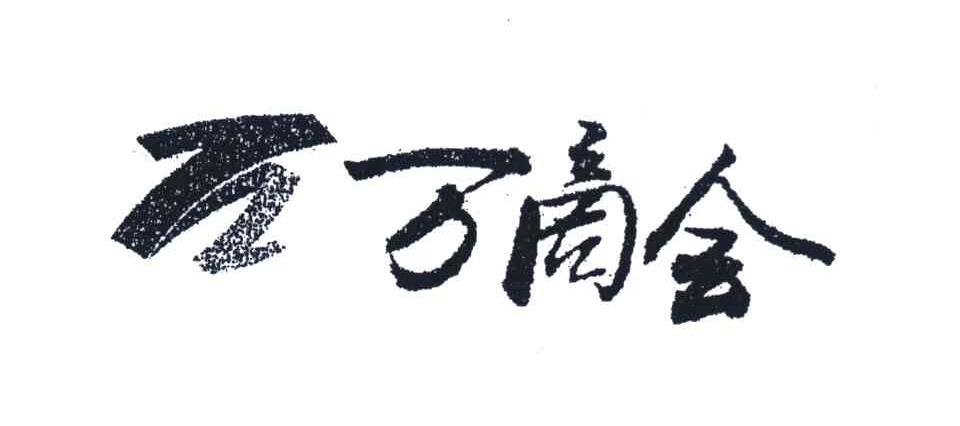 万商会